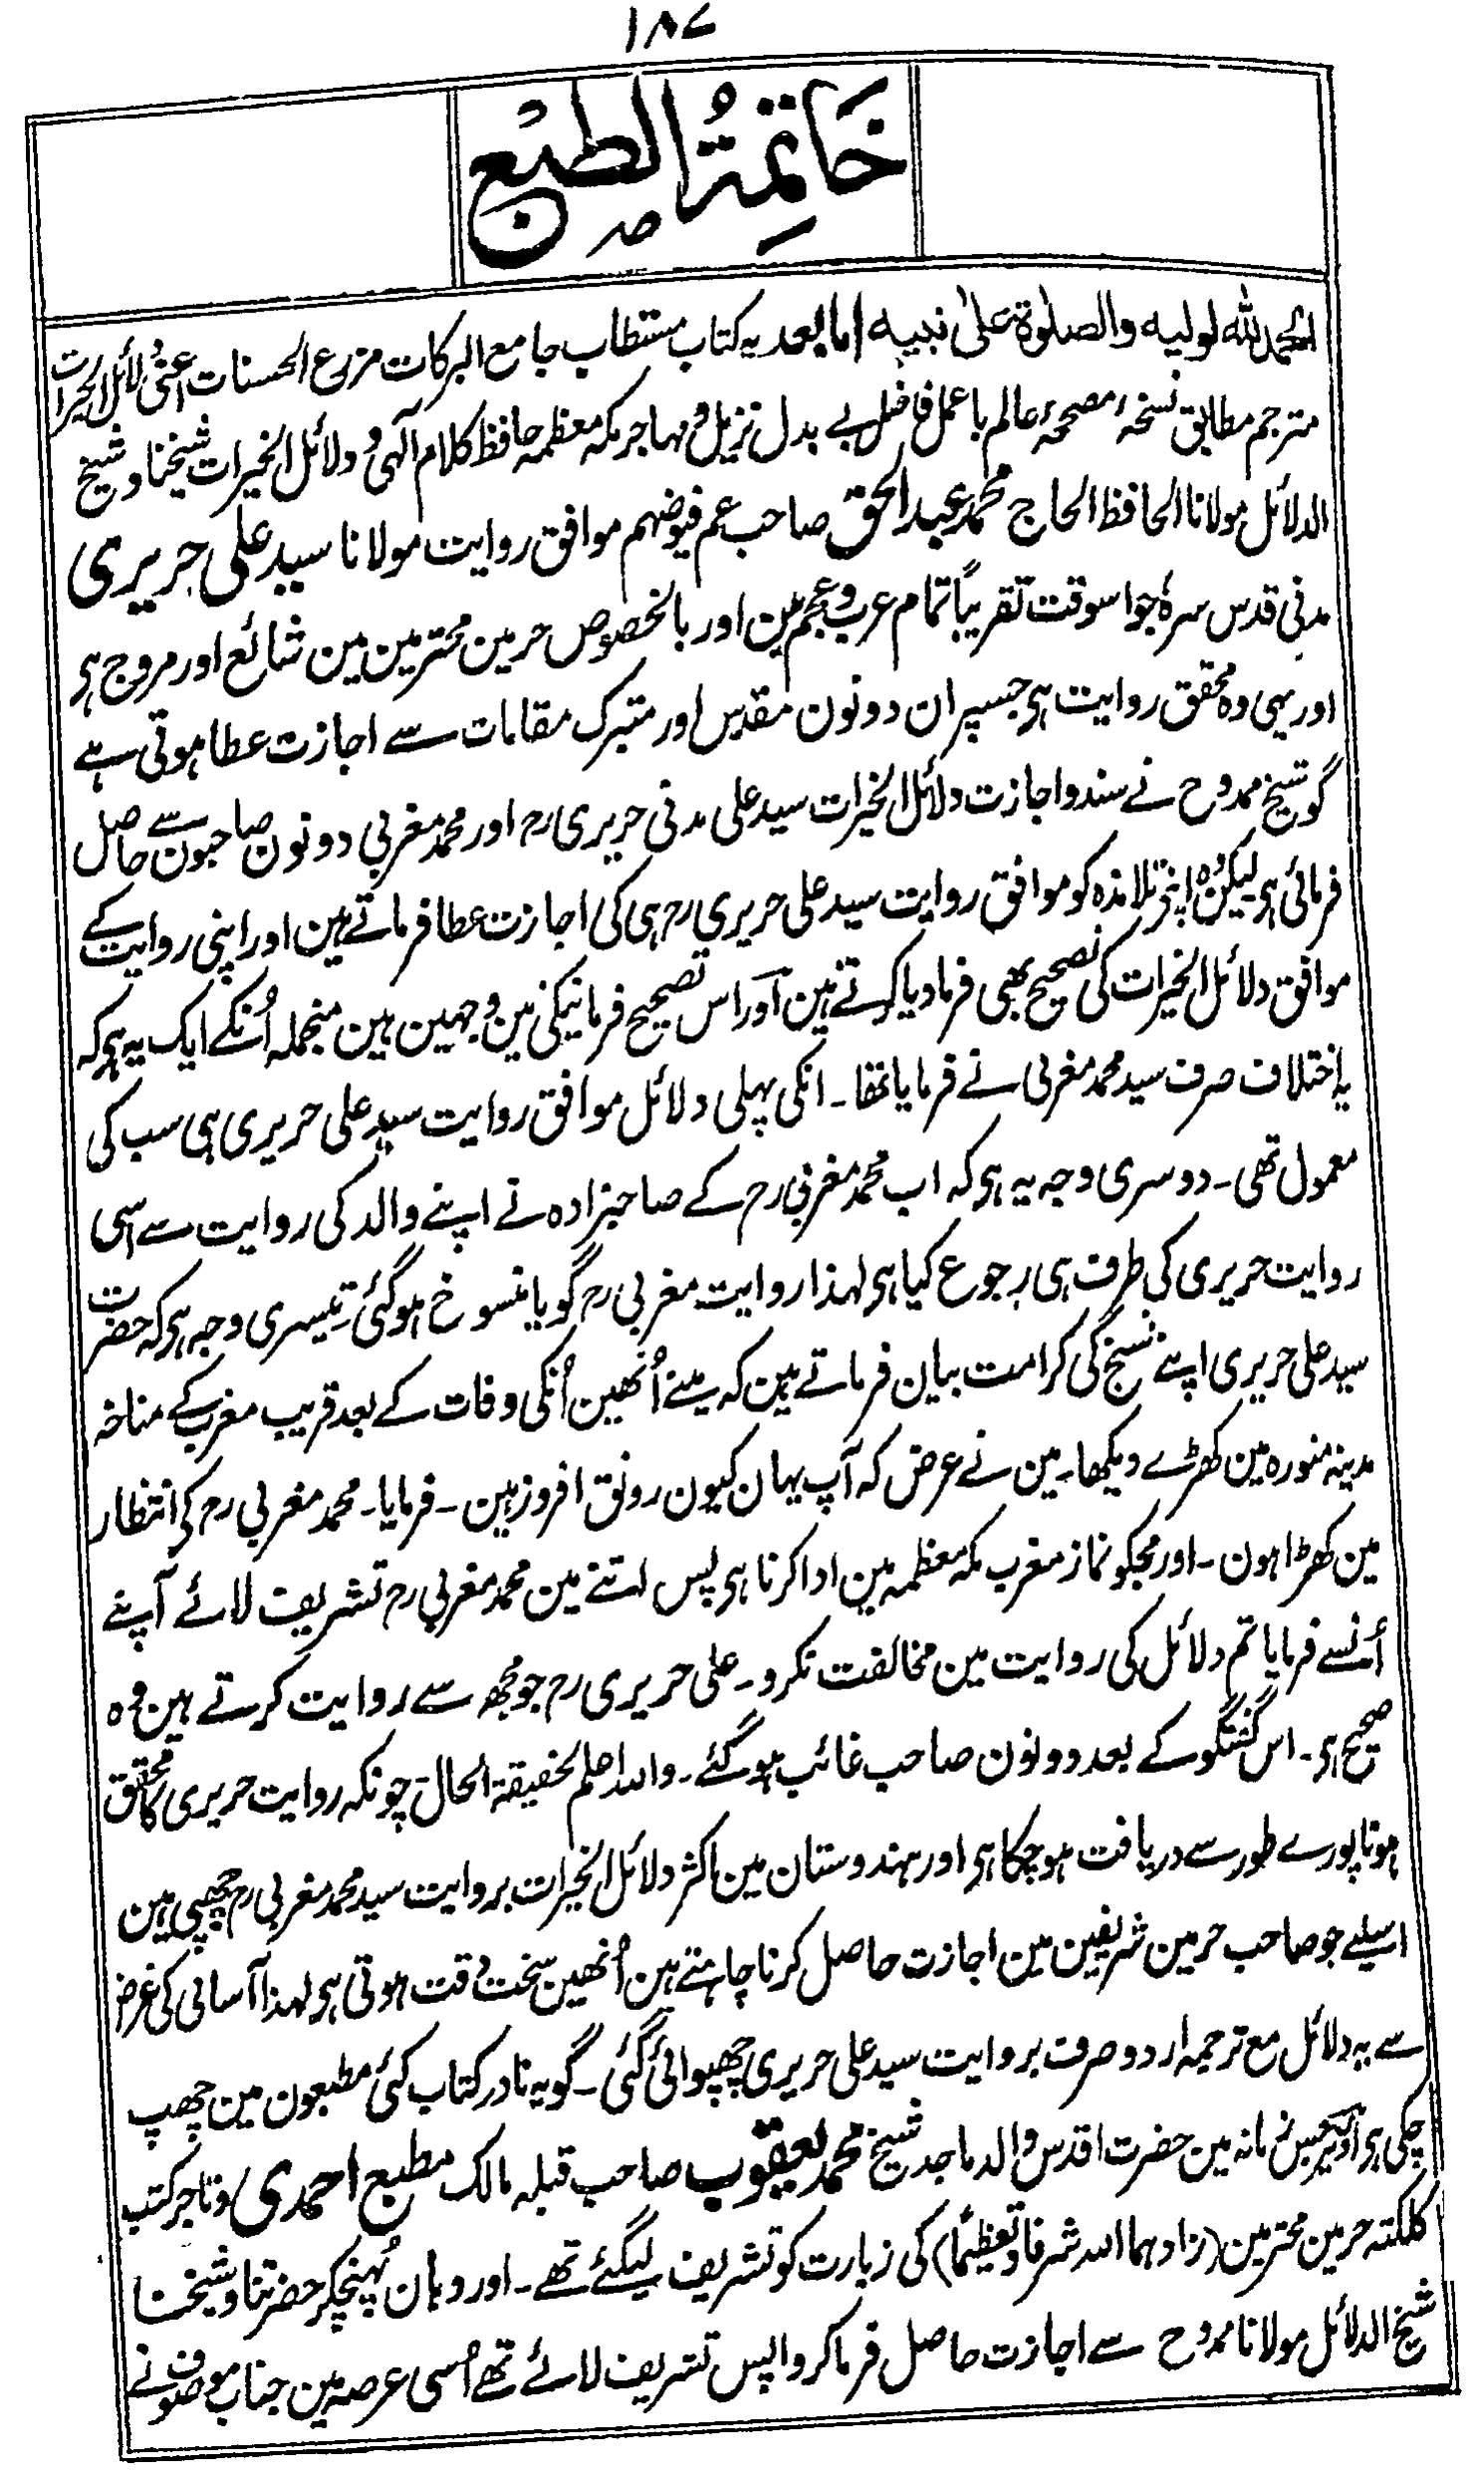 ۱۸۷
خَاتِمَةُ الطَّبْع
الحمد للہ لولیہ والصلوٰۃ علیٰ نبیہ اما بعد یہ کتاب مستطاب جامع البرکات مزرع الحسنات اعنی دلائل الخیرات
مترجم مطابق نسخہ مصححہ عالم باعمل فاضل بے بدل نزیل و مہاجر مکہ معظمہ حافظ کلام الٰہی و دلائل الخیرات شیخنا و شیخ
الدلائل مولانا الحافظ الحاج محمد عبد الحق صاحب عم فیوضہم موافق روایت مولانا سید علی حریری
مدنی قدس سرہٗ جو اسوقت تقریباً تمام عرب و عجم مین اور بالخصوص حرمین محترمین مین شائع اور مروج ہی
اور یہی وہ محقق روایت ہی جسپر ان دونون مقدس اور متبرک مقامات سے اجازت عطا ہوتی ہے
گو شیخ ممدوح نے سند و اجازت دلائل الخیرات سید علی مدنی حریری رح اور محمد مغربی دونون صاحبون سے حاصل
فرمائی ہی لیکن وہ اپنے تلامذہ کو موافق روایت سید علی حریری رح ہی کی اجازت عطا فرماتے ہین اور اپنی روایت کے
موافق دلائل الخیرات کی تصحیح بھی فرما دیا کرتے ہین اور اس تصحیح فرمانیکی تین وجہین ہین منجملہ اُنکے ایک یہ ہی کہ
یہ اختلاف صرف سید محمد مغربی نے فرمایا تھا۔ انکی پہلی دلائل موافق روایت سید علی حریری ہی سب کی
معمول تھی۔ دوسری وجہ یہ ہی کہ اب محمد مغربی رح کے صاحبزادہ نے اپنے والد کی روایت سے اسی
روایت حریری کی طرف ہی رجوع کیا ہی لہذا روایت مغربی رح گویا منسوخ ہو گئی تیسری وجہ ہی کہ حضرت
سید علی حریری اپنے شیخ کی کرامت بیان فرماتے ہین کہ مینے اُنھین اُنکی وفات کے بعد قریب مغرب کے مناخہ
مدینہ منورہ مین کھڑے دیکھا۔ مین نے عرض کہ آپ یہان کیون رونق افروز ہین۔ فرمایا۔ محمد مغربی رح کی انتظار
مین کھڑا ہون۔ اور مجکو نماز مغرب مکہ معظمہ مین ادا کرنا ہی پس اتنے مین محمد مغربی رح تشریف لائے آپنے
اُنسے فرمایا تم دلائل کی روایت مین مخالفت نکرو۔ علی حریری رح جو مجھ سے روایت کرتے ہین وہ
صحیح ہی۔ اس گفتگو کے بعد دونون صاحب غائب ہو گئے۔ واللہ اعلم بحقیقۃ الحال چونکہ روایت حریری کا محقق
ہونا پورے طور سے دریافت ہو چکا ہی اور ہندوستان مین اکثر دلائل الخیرات بروایت سید محمد مغربی رح چھپی ہین
اسلیے جو صاحب حرمین شریفین مین اجازت حاصل کرنا چاہتے ہین اُنھین سخت دقت ہوتی ہی لہذا آسانی کی غرض
سے یہ دلائل مع ترجمہ اردو صرف بروایت سید علی حریری چھپوائی گئی۔ گو یہ نادر کتاب کئی مطبعون مین چھپ
چکی ہی اور جس زمانہ مین حضرت اقدس والد ماجد شیخ محمد یعقوب صاحب قبلہ مالک مطبع احمدی و تاجر کتب
کلکتہ حرمین محترمین (زادہما اللہ شرفاً و تعظیماً) کی زیارت کو تشریف لیگئے تھے۔ اور وہان پہنچکر حضرتنا و شیخنا
شیخ الدلائل مولانا ممدوح سے اجازت حاصل فرما کر واپس تشریف لائے تھے اُسی عرصہ مین جناب موصوف نے